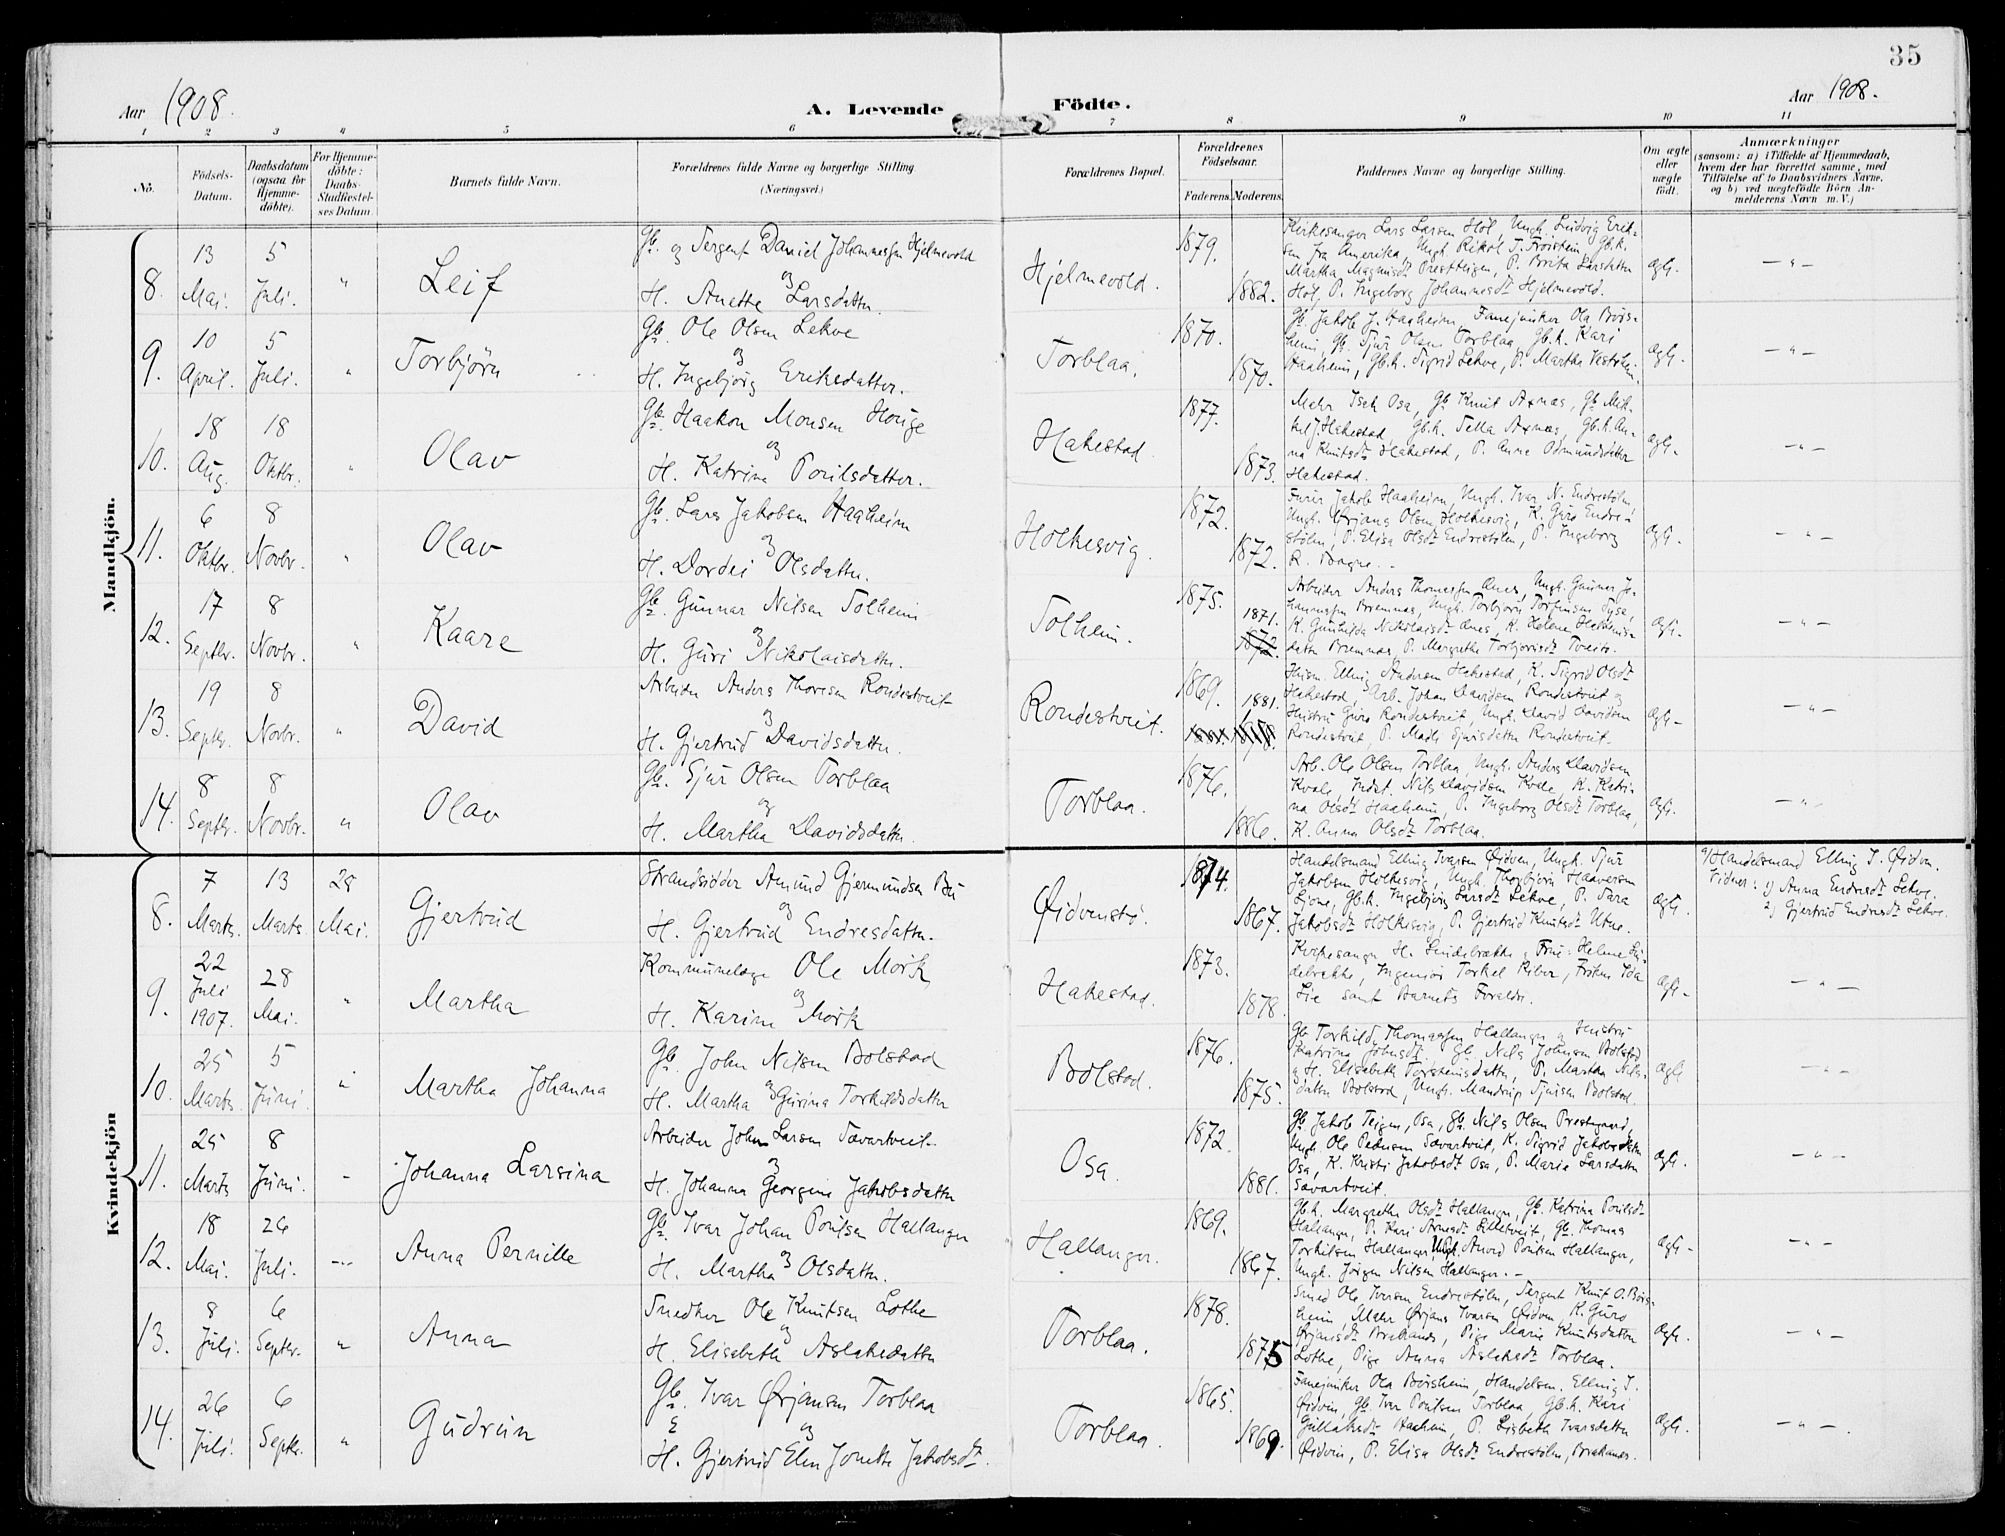 35
Aar 1908.
A. Levende Födte.
Aar 1908.
1 2 3 4 5 6 7 8 9 10 11
No.
Födsels-Datum.
Daabsdatum (ogsaa for Hjemme-döbte).
For Hjemme-döbte: Daabs-Stadfæstel-ses Datum.
Barnets fulde Navn.
Forældrenes fulde Navne og borgerlige Stilling (Næringsvei.)
Forældrenes Bopæl.
Forældrenes Födselsaar.
Faderens. Moderens.
Faddernes Navne og borgerlige Stilling.
Om ægte eller uægte födt.
Anmærkninger
(saasom: a) i Tilfælde af Hjemmedaab, hvem der har forrettet samme, med Tilföielse af to Daabsvidners Navne, og b) ved uegtefödte Börn An-melderens Navn m. V.)
Mandkjön.
8. 13 Mai. 5 Juli. " Leif
Gb. og Sergent Daniel Johannessen Hjelmevold
og
H. Anette Larsdatter.
Hjelmevold. 1879. 1882.
Kirkesanger Lars Larsen Hol, Ungk. Ludvig Erik-
sen fra Amerika, Ungk. Rikol T. Froistein, Gb.k.
Martha Magnusdt Prestteigen, P. Brita Larsdatter
Hol, P. Ingeborg Johannesdt Hjelmevold.
Ægte. — " —
9. 10 April. 5 Juli. " Torbjörn
Gb. Ole Olsen Lekve
og
H. Ingebjörg Eriksdatter.
Torblaa. 1870. 1870.
Gb. Jakob J. Haaheim, Fanejunker Ola Börs-
heim, Gb. Sjur Olsen Torblaa, Gb.k. Kari
Haaheim, Gb.k. Sigrid Lekve, P. Martha Vestrheim.
Ægte. — " —
10. 18 Aug. 18 Oktbr. " Olav
Gb. Haakon Monsen Houge
og
H. Katrina Poulsdatter.
Hakestad. 1877. 1873.
Osa, Gb. Knut Axnæs, Gb. Mik-
kel J. Hakestad, Gb.k. Axnæs, Gb.k. An-
na Knutsdt Hakestad, P. Anne Odmundsdatter
Hakestad.
Ægte. — " —
11. 6 Oktbr. 8 Novbr. " Olav
Gb. Lars Jakobsen Haaheim
og
H. Dordei Olsdatter.
Holkesvig. 1872. 1872.
Jakob Haaheim, Ungk. Ivar N. Endrestölen,
Ungk. Örjans Olsen Holkesvig, K. Guro Endre-
stölen, P. Elisa Olsdt Endrestölen, P. Ingeborg
R.
Ægte. — " —
12. 17 Septbr. 8 Novbr. " Kaare
Gb. Gunnar Nilsen Solheim
og
H. Guri Nikolaisdatter.
Solheim. 1875. 1871. 1872.
Arbeider Anders Thomessen Ænes, Ungk. Gunnar Jo-
hannessen Bremnæs, Ungk. Torbjörn Torfinsen Syse,
K. Gunhilda Nikolaisdt Ænes, K. Helene
datter Bremnæs, P. Margrethe Torbjörnsdt Tveite.
Ægte. — " —
13. 19 Septbr. 8 Novbr. " David
Arbeider Anders Thoresen Rondestveit
og
H. Gjertrud Davidsdatter.
Rondestveit. 1869. 1881.
Husm. Elling Andersen Hakestad, K. Sigrid Olsdt
Hakestad, Arb. Johan Davidsen Rondestveit og
Hustru Guro Rondestveit, Ungk. David Davidsen
Rondestveit, P. Madli Sjursdatter Rondestveit.
Ægte. — " —
14. 8 Septbr. 8 Novbr. " Olav
Gb. Sjur Olsen Torblaa
og
H. Martha Davidsdatter.
Torblaa. 1876. 1886.
Arb. Ole Olsen Torblaa, Ungk. Anders Davidsen
Kvale, Indst. Nils Davidsen Kvale, K. Katri-
na Olsdt Haaheim, P. Ingeborg Olsdt Torblaa,
K. Anna Olsdt Torblaa.
Ægte. — " —
Kvindekjön
8. 7 Marts. 13 Marts. 28 Mai. Gjertrud
Strandsidder Amund Gjermundsen Bu
og
H. Gjertrud Endresdatter.
Øidvenstø. 1874. 1867.
Handelsmand Elling Ivarsen Øidven, Ungk. Sjur
Jakobsen Holkesvig, Ungk. Thorbjörn Haaversen
Ljone, Gb.k. Ingebjörg Larsdt Lekve, P. Sara
Jakobsdt Holkesvig, P. Gjertrud Knutsdt Utne.
Ægte.
a) Handelsmand Elling I. Øidven.
Vidner: 1) Anna Endresdt Lekve.
2) Gjertrud Endresdt Lekve.
9. 22 Juli 1907. 28 Mai. " Martha
Kommunelæge Ole Mörk
og
H. Karine Mörk
Hakestad. 1873. 1878.
Kirkesanger H. Lindebrække, Frue Helene Lin-
debrække, Ingeniör Torkel Riber, Fröken Ida
Lie samt Barnets Forældre.
Ægte. — " —
10. 25 Marts. 5 Juni. " Martha Johanna
Gb. John Nilsen Bolstad
og
H. Martha Gurina Torkildsdatter
Bolstad. 1876. 1875.
Gb. Torkild Thomassen Hallanger og Hustru
Katrina Johnsdt, Gb. Nils Johnsen Bolstad
og H. Elisabeth Torsteinsdatter, P. Martha Nils-
datter Bolstad, Ungk. Mandrup Sjursen Bolstad.
Ægte — " —
11. 25 Marts 8 Juni. - Johanna Larsina
Arbeider John Larsen Sævartveit.
og
H. Johanna Georgine Jakobsdatter
Osa. 1872. 1881.
Gb. Jakob Teigen, Osa, Gb. Nils Olsen Prestegaard,
Ungk. Ole Pedersen Sævartveit, K. Sigrid Jakobsdatter
Osa, K. Kristi Jakobsdt Osa, P. Marie Larsdatter
Sævartveit.
Ægte. — " —
12. 18 Mai. 26 Juli. — Anna Pernille
Gb. Ivar Johan Poulsen Hallanger
og
H. Martha Olsdatter.
Hallanger. 1869. 1867.
Gb.k. Margrethe Olsdt Hallanger, Gb. Katrina Poulsdt
Hallanger, P. Kari Arnesdt, Gb. Thomas
Torkilsen Hallanger, Ungk. Amund Poulsen Hallanger,
Ungk. Jörgen Nilsen Hallanger. —
Ægte — " —
13. 8 Juli. 6 Septbr. " Anna
Snedker Ole Knutsen Lothe
og
H. Elisabeth Aslaksdatter
Torblaa. 1878. 1875
Smed Ole Iversen Endrestölen, Sergent Knut O. Börs-
heim, Örjans Ivarsen Øidven, K. Guro
Örjansdt Brakanes, Pige Marie Knutsdatter
Lothe, Pige Anna Aslaksdt Torblaa.
Ægte. — " —
14. 26 Juli. 6 Septbr. " Gudrun
Gb. Ivar Ørjansen Torblaa
og
H. Gjertrud Elen Jonette Jakobsdt.
Torblaa. 1865. 1869
Fanejunker Ola Börsheim, Handelsm. Elling I.
Øidvin, Gb. Ivar Poulsen Torblaa, Gb.k. Kari
Haaheim, P. Lisbeth Ivarsdatter
Øidvin, P. Elisa Olsdt Endrestölen, Brakanes.
Ægte. — " —